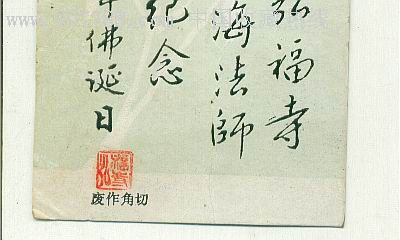 弘福寺
海法師
纪念
年佛誕日
切角作废